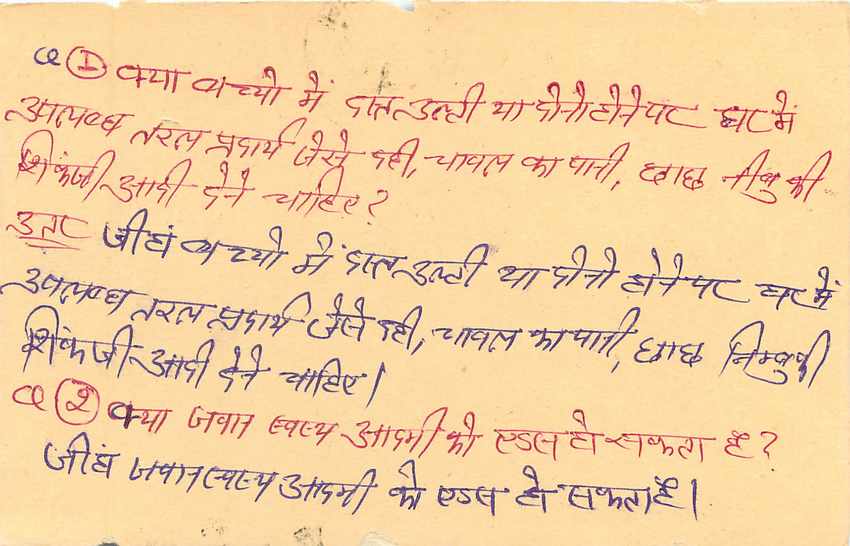 Q ① क्या बच्चो में दस्त उल्टी या दोनो होने पर घर में
उपलब्ध तरल प्रदार्थ जैसे दही, चावल का पानी, छाछ नीबु की
शिकंजी आदी देने चाहिए?
उतर जीहां बच्चो में दस्त उल्टी या दोनो होने पर घर में
उपलब्ध तरल प्रदार्थ जैसे दही, चावल का पानी, छाछ निम्बु की
शिकंजी आदी देने चाहिए।
Q ② क्या जवान स्वस्थ आदमी को एडस हो सकता है?
जीहां जवान स्वस्थ आदमी को एडस हो सकता है।